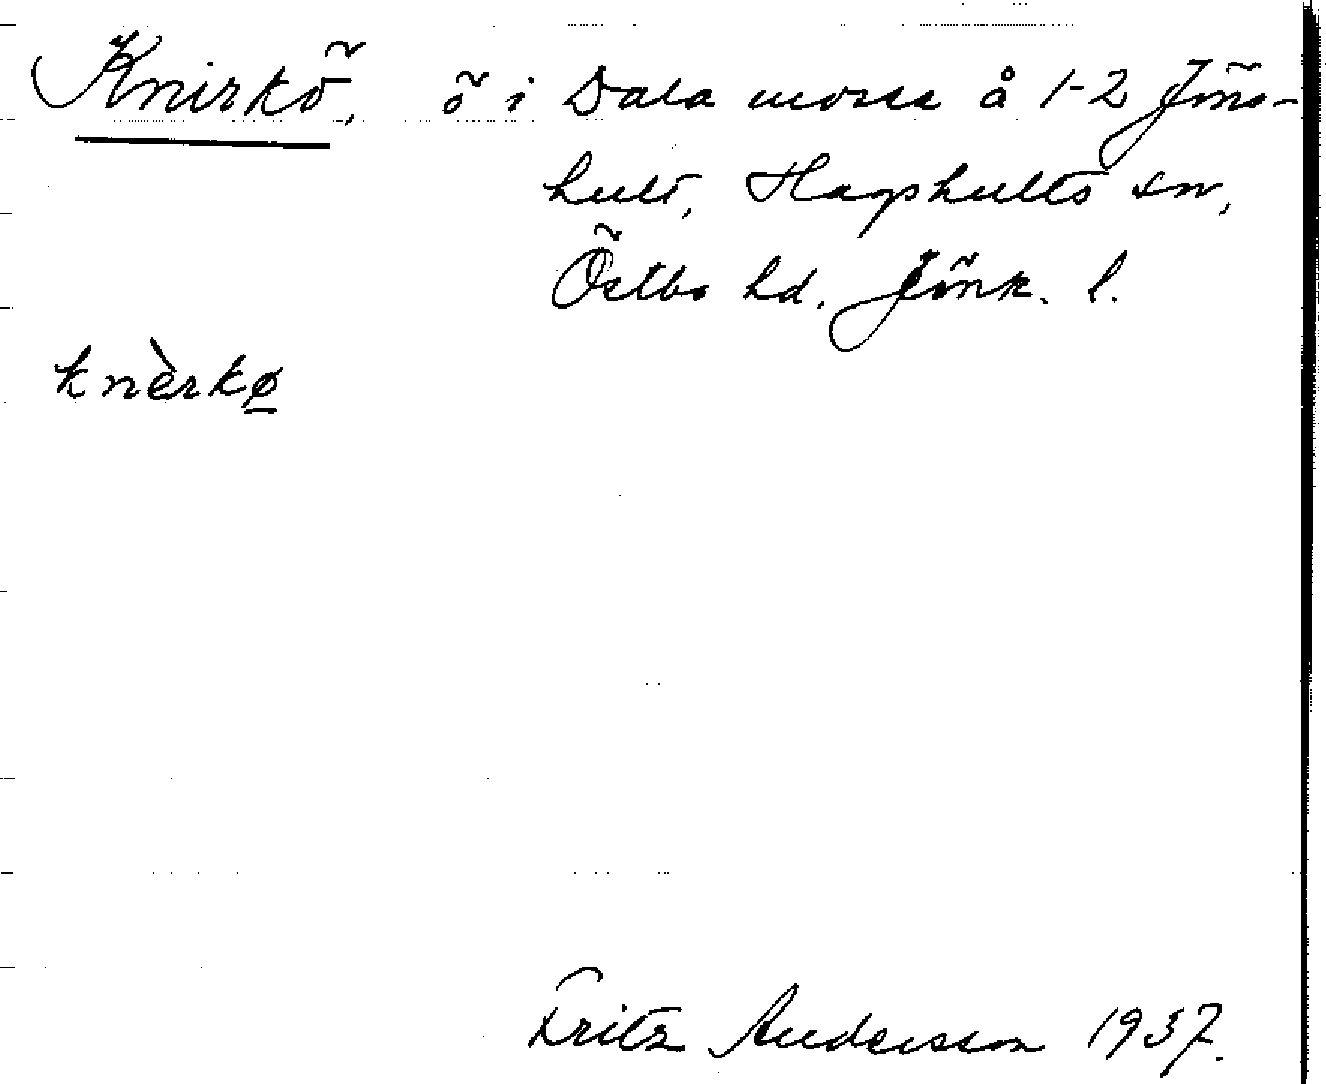 Knirkö, ö i Dala mosse å 1-2 Jöns-
hult, Hagshults sn,
Östbo hd. Jönk. l.
knèrkø
Fritz Andersson 1937.